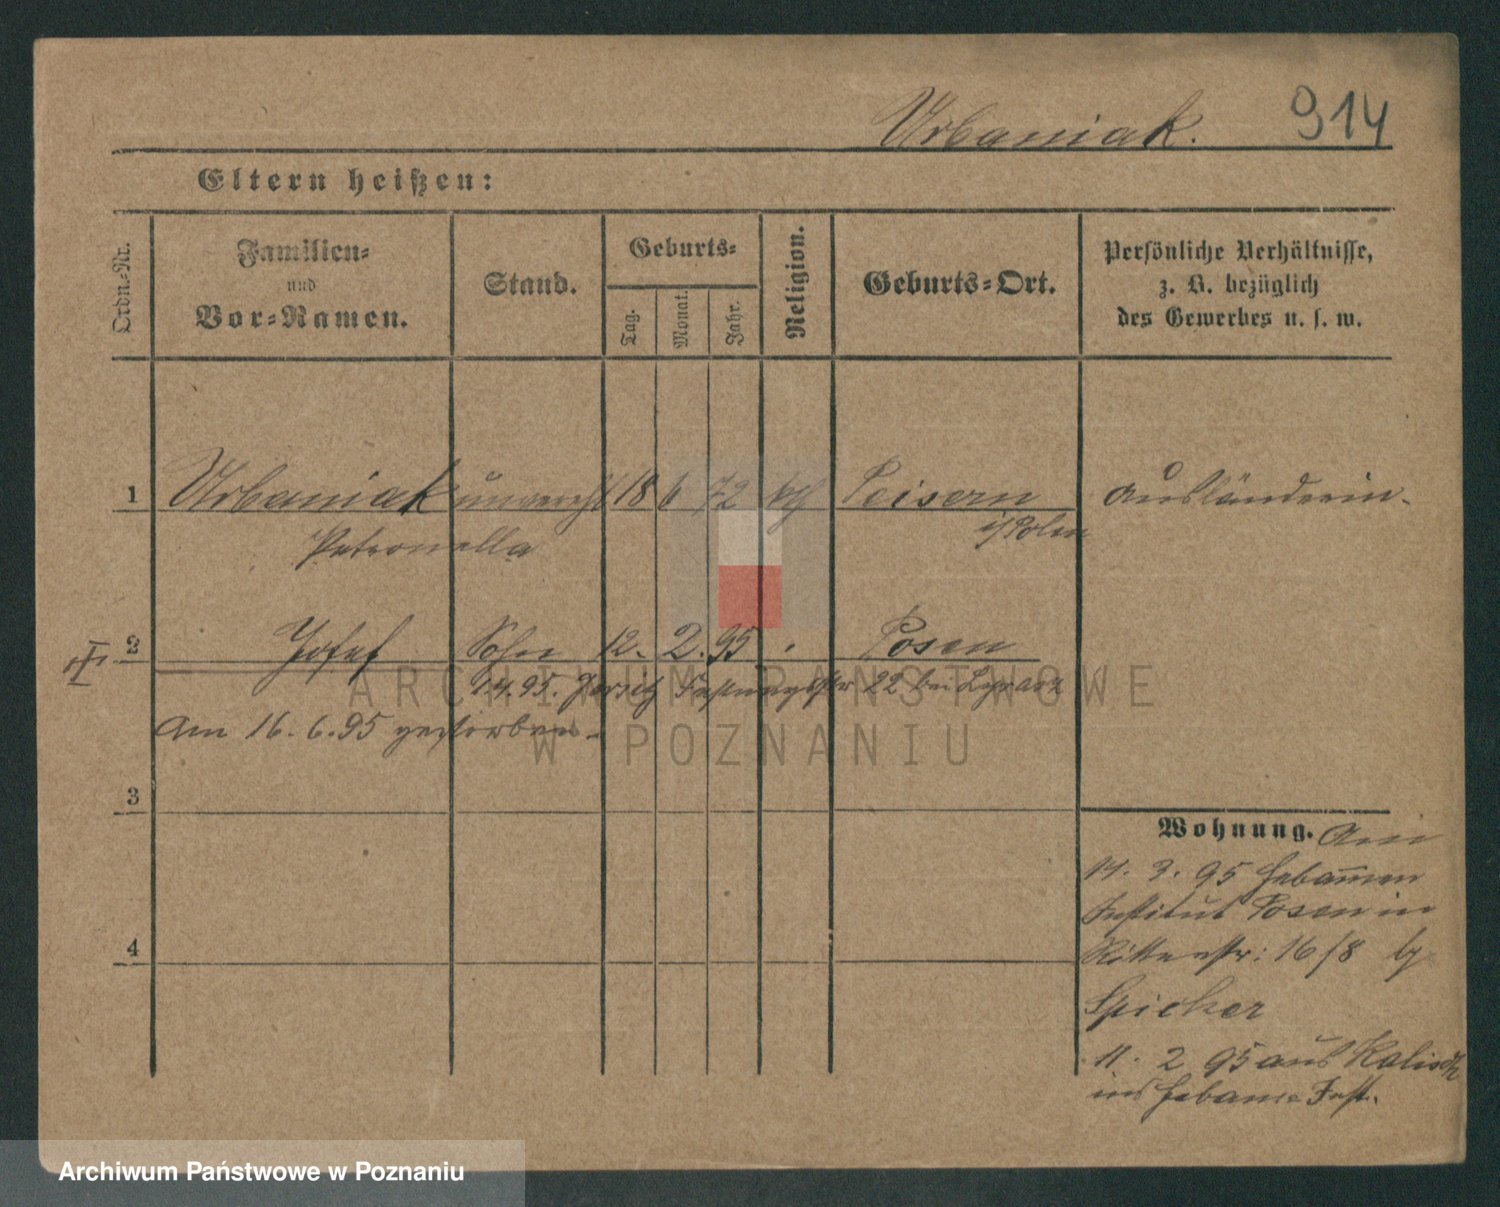 Urbaniak. 914
Eltern heißen:
Ordn.-Nr.
Familien-
und
Vor-Namen.
Stand.
Geburts-
Tag.
Monat.
Jahr.
Religion.
Geburts-Ort.
Persönliche Verhältnisse,
z. B. bezüglich
des Gewerbes u. s. w.
1 Urbaniak unverehl 18 6 72 kth Peisern Ausländerin.
Petronella i/Polen
2 Josef Sohn 12. 2. 95 Posen
1.4.95. Jersitz Festungsstr 22 bei
am 16. 6. 95 gestorben.
3
Wohnung. Am
11. 3. 95 Hebammen
Institut Posen in
Ritterstr: 16/8 by
Spicker
4
11. 2 95 aus Kalisch
ins Hebamm Inst.
ARCHIWUM PAŃSTWOWE
W POZNANIU
Archiwum Państwowe w Poznaniu